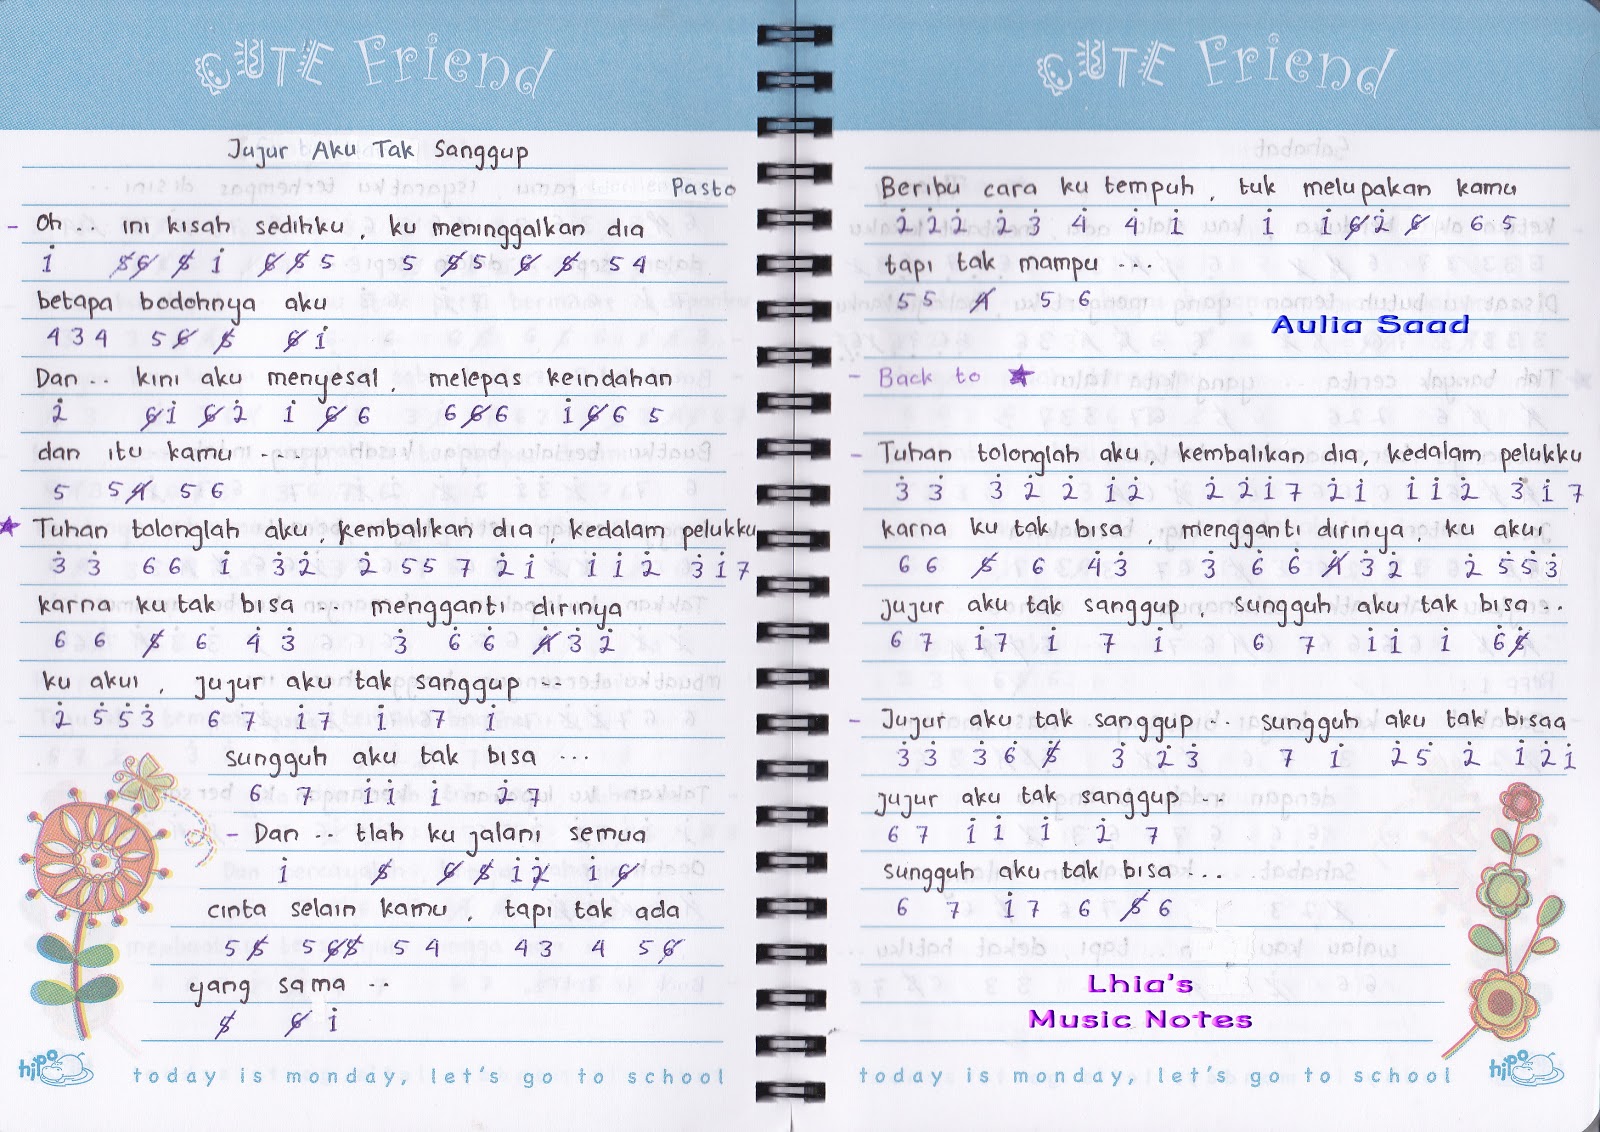 CUTE Friend
Jujur Aku Tak Sanggup
Pasto
- Oh .. ini kisah sedihku , ku meninggalkan dia
i̇ 5̸6̸ 5̸ i̇ 6̸ 5̸ 5 5 5̸5 6̸ 5̸ 5 4
betapa bodohnya aku
4 3 4 5 6̸ 5̸ 6̸ i̇
Dan .. kini aku menyesal , melepas keindahan
2̇ 6̸i̇ 6̸2̇ i̇ 6̸ 6 6 6̸ 6 i̇ 6̸ 6 5
dan itu kamu ....
5 5 4̸ 5 6
★ Tuhan tolonglah aku , kembalikan dia , kedalam pelukku
3̇ 3̇ 6 6 i̇ 3̇ 2̇ 2̇ 5 5 7 2̇ i̇ i̇ i̇ 2̇ 3̇ i̇ 7
karna ku tak bisa ... mengganti dirinya
6 6 5̸ 6 4̇ 3̇ 3̇ 6̇ 6̇ 4̸̇ 3̇ 2̇
ku akui , jujur aku tak sanggup ...
2̇ 5̇ 5̇ 3̇ 6 7 i̇ 7 i̇ 7 i̇
sungguh aku tak bisa ...
6 7 i̇ i̇ i̇ 2̇ 7
- Dan .. tlah ku jalani semua
i̇ 5̸ 6̸ 5̸ i̇ 2̸̇ i̇ 6̸
cinta selain kamu , tapi tak ada
5 5̸ 5 6̸5̸ 5 4 4 3 4 5 6̸
yang sama ..
5̸ 6̸ i̇
hipo
today is monday, let's go to school
CUTE Friend
Beribu cara ku tempuh , tuk melupakan kamu
2̇ 2̇ 2̇ 2̇ 3̇ 4̇ 4̇ i̇ i̇ i̇ 6̸ 2̇ 6̸ 6 5
tapi tak mampu ...
5 5 4̸ 5 6
Aulia Saad
- Back to ★
- Tuhan tolonglah aku , kembalikan dia, kedalam pelukku
3̇ 3̇ 3̇ 2̇ 2̇ i̇ 2̇ 2̇ 2̇ i̇ 7 2̇ i̇ i̇ i̇ 2̇ 3̇ i̇ 7
karna ku tak bisa , mengganti dirinya , ku akui
6 6 5̸ 6 4̇ 3̇ 3̇ 6̇ 6̇ 4̸̇ 3̇ 2̇ 2̇ 5̇ 5̇ 3̇
jujur aku tak sanggup , sungguh aku tak bisa ..
6 7 i̇ 7 i̇ 7 i̇ 6 7 i̇ i̇ i̇ 6 5̸
- Jujur aku tak sanggup .. sungguh aku tak bisaa
3̇ 3̇ 3̇ 6̇ 5̸̇ 3̇ 2̇ 3̇ 7 i̇ 2̇ 5̇ 2̇ i̇ 2̇ i̇
jujur aku tak sanggup ...
6 7 i̇ i̇ i̇ 2̇ 7
sungguh aku tak bisa ...
6 7 i̇ 7 6 5̸ 6
Lhia's
Music Notes
today is monday, let's go to school
hipo